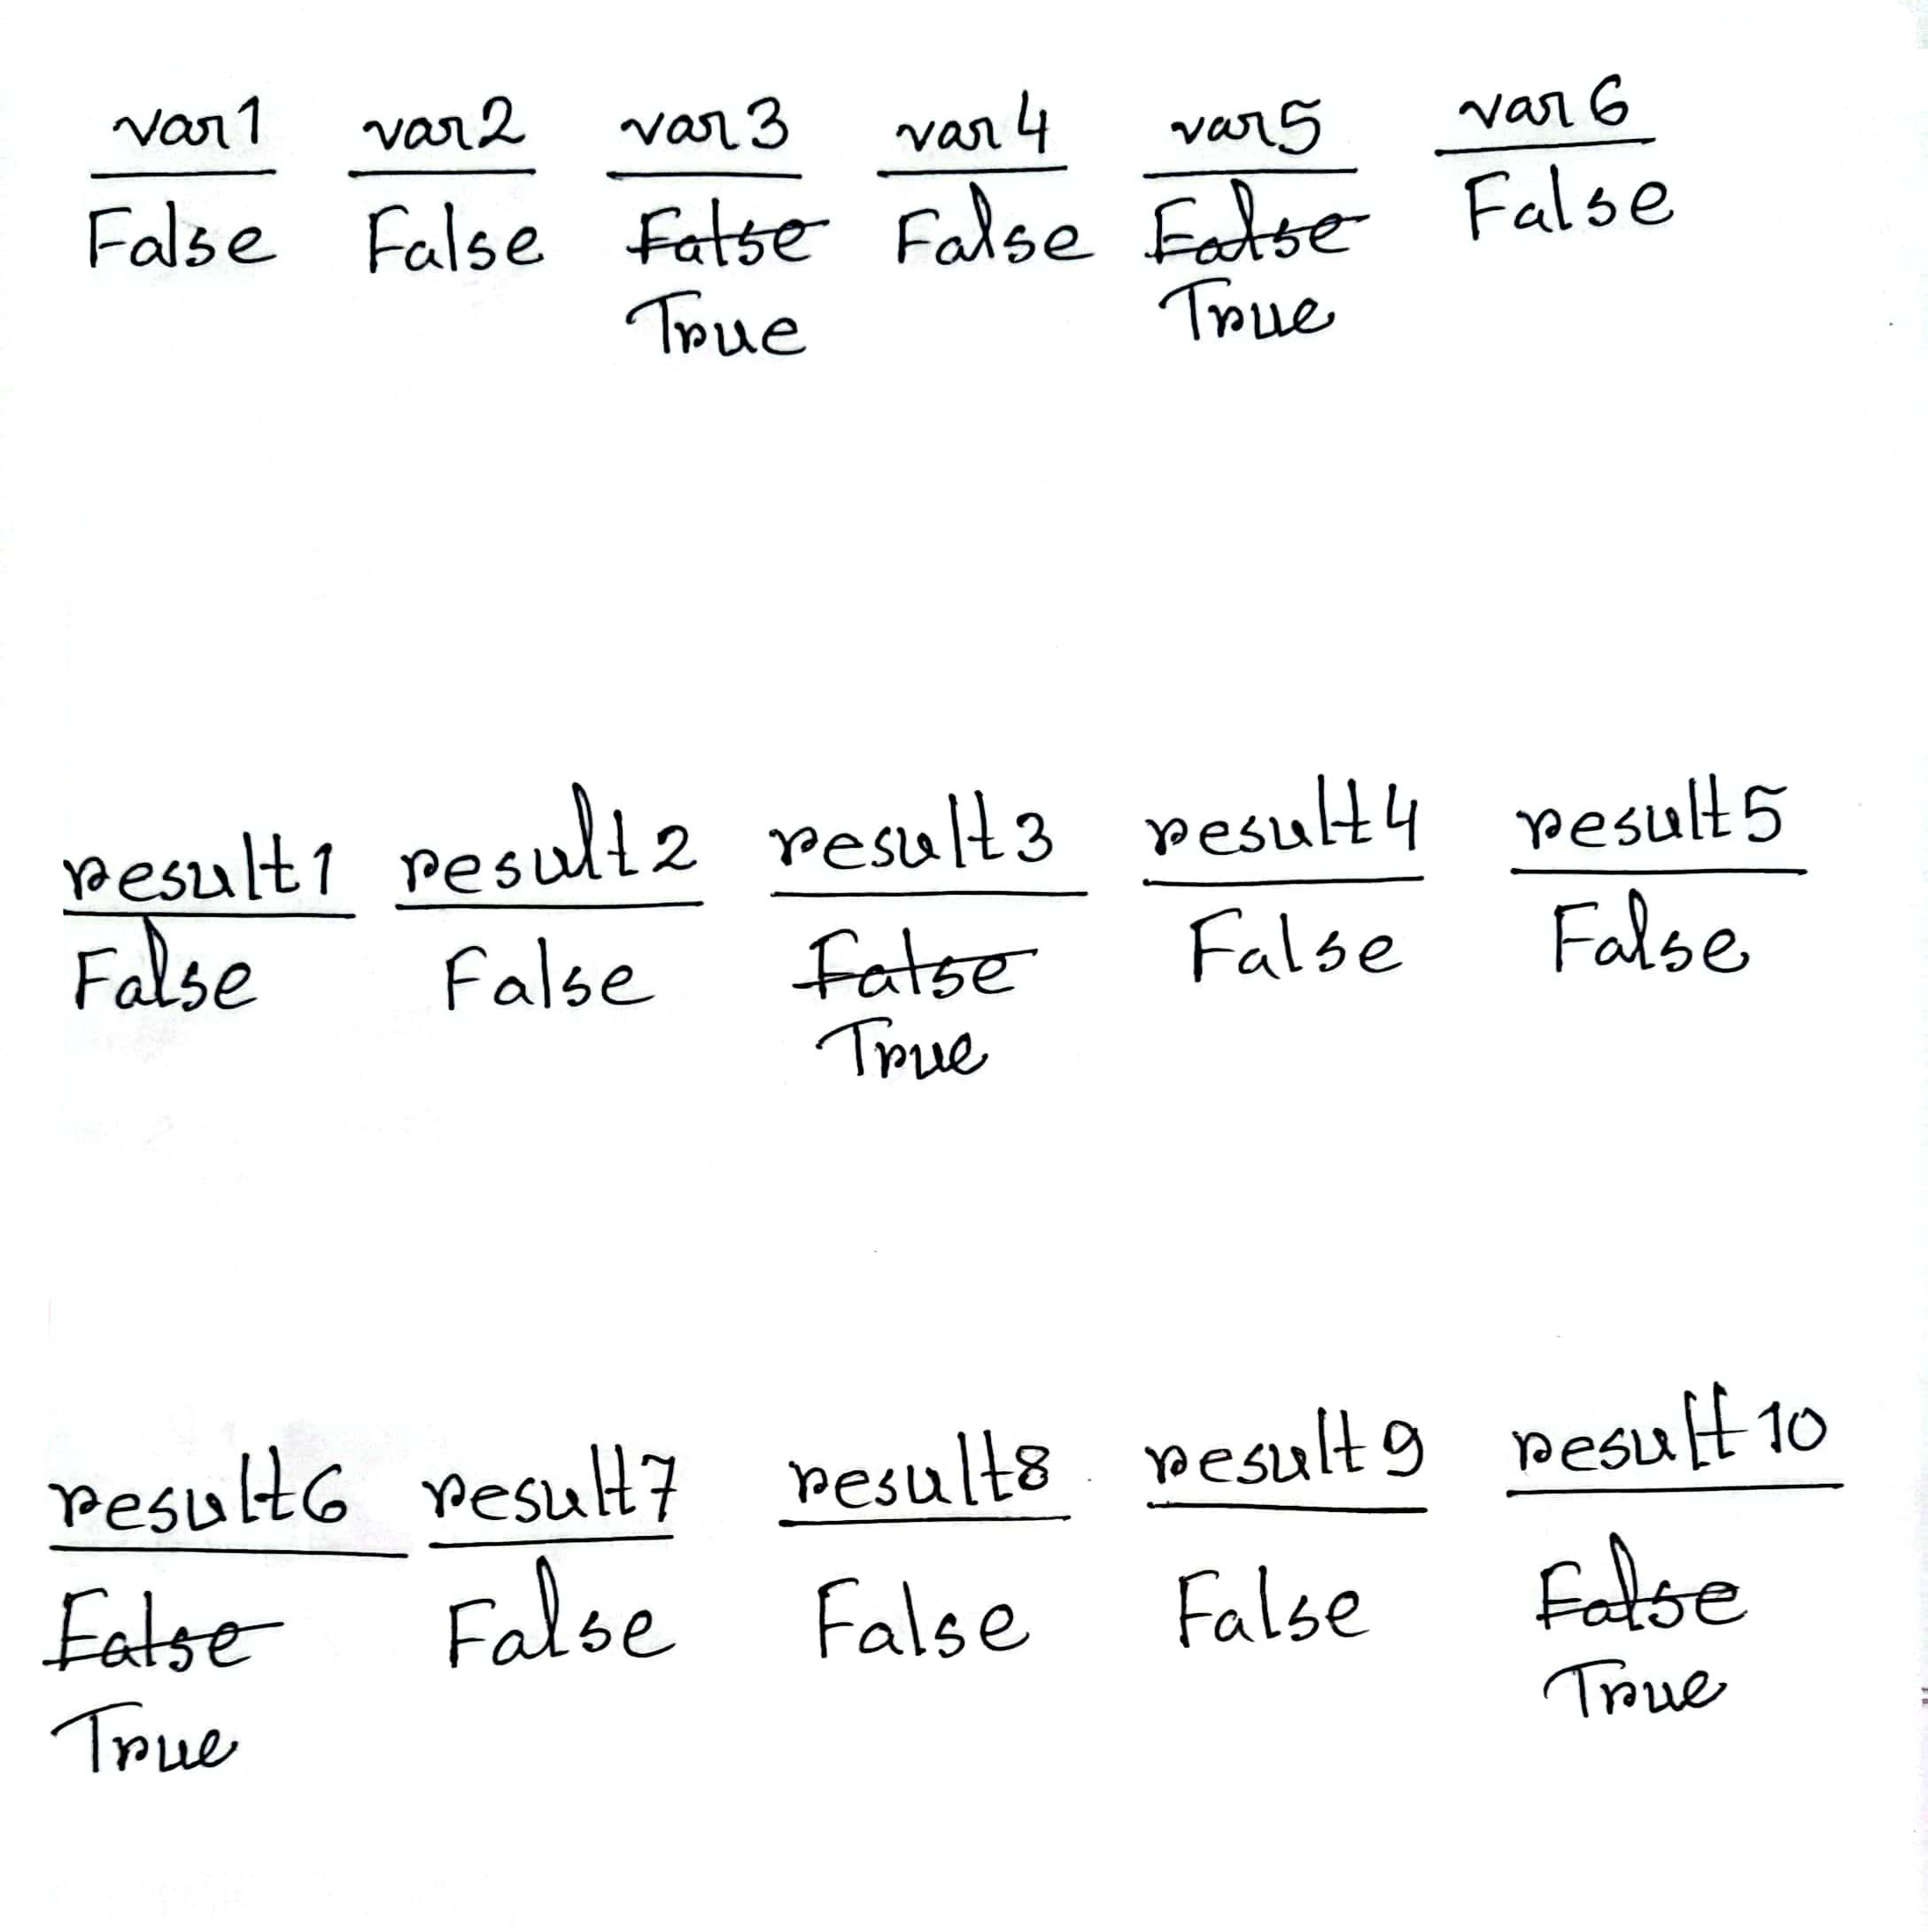 var1 var2 var3 var4 var5 var6
False False False False False False
True True
result1 result2 result3 result4 result5
False False False False False
True
result6 result7 result8 result9 result10
False False False False False
True True